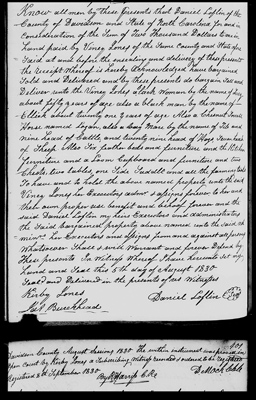 Know all men by these Presents that Daniel Loflin of the
County of Davidson and State of North Carolina for and in
consideration of the Sum of Two Thousand Dollars to me in
hand paid by Viney Jones of the same County and State afore
Said at and before the ensealing and delivery of these presents
the receipt whereof is hereby Acknowledged have bargained
Sold and Delivered and by these presents do bargain Sell and
Deliver unto the Viney Jones a black Woman by the name of
about fifty years of age also a black man by the name of
about twenty one years of age Also a Chesnut
Horse named Logan, also a bay Mare by the name of
nine head of Cattle and twenty nine head of Hogs
of Sheep Also Six feather beds and furniture and the Kitchen
furniture and a Loom Cupboard and furniture and two
Chests two tables, one Side Saddle and all the farming tools
To have and to hold the above named property unto the said
Viney Jones her Executors and assigns forever to her and
their own proper use benefit and behoof forever and the
said Daniel Loflin my heirs Executors and administrators
the Said bargained property above named unto the said
her Executors and assigns from and against all persons
Whatsoever Shall & will Warrant and forever Defend by
These presents In Witness Whereof I have hereunto Set my
hand and Seal this 5th day of August 1830.
Seal and Delivered in the presents of us Witness
Kirby Jones
Daniel Loflin
401
Davidson County August Sessions 1830 The within instrument was proved in
open Court by Kirby Jones a Subscribing Witness recorded & ordered to be registered
Registered 8th September 1830.
D Mock Clk